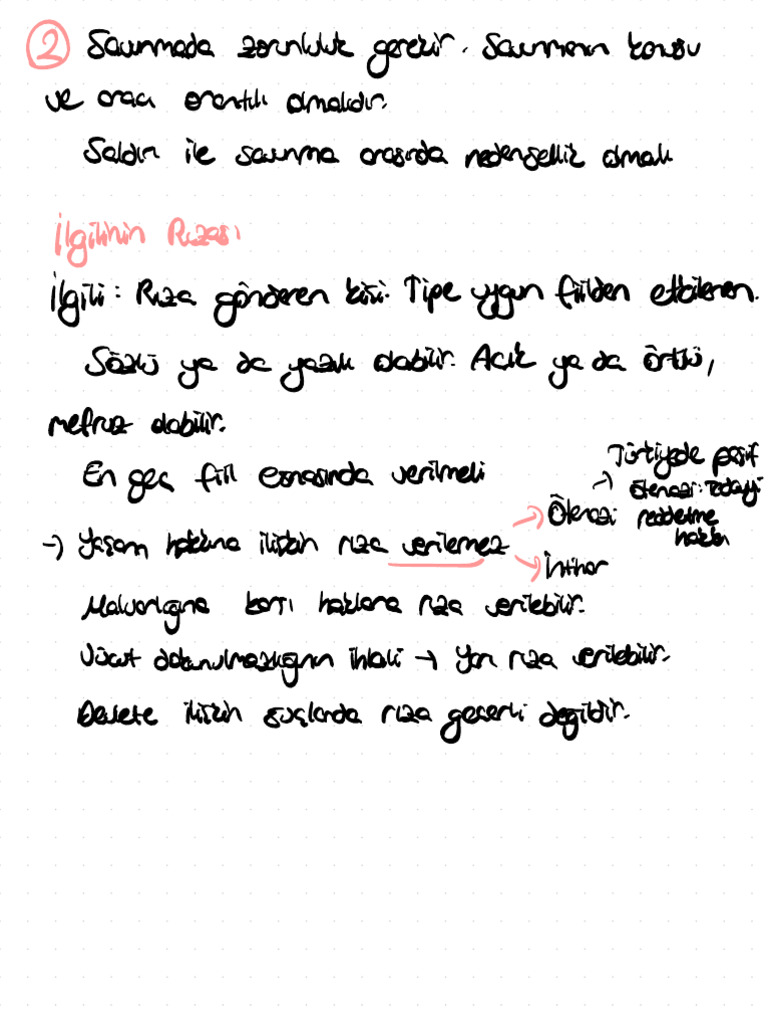 2 Savunmada zorunluluk gerekir. Savunmanın konusu
ve aracı orantılı olmalıdır.
Saldırı ile savunma arasında nedensellik olmalı
İlgilinin Rızası
İlgili: Rıza gönderen kişi. Tipe uygun fiilden etkilenen.
Sözlü ya da yazılı olabilir. Açık ya da örtülü,
mefruz olabilir.
En geç fiil esnasında verilmeli
→ Yaşam hakkına ilişkin rıza verilemez → Ötenazi → İntihar
Türkiyede pasif
→ ötenazi: tedaviyi
reddetme
hakkı
Malvarlığına karşı haklara rıza verilebilir.
Vücut dokunulmazlığının ihlali → Yarı rıza verilebilir.
Devlete ilişkin suçlarda rıza geçerli değildir.